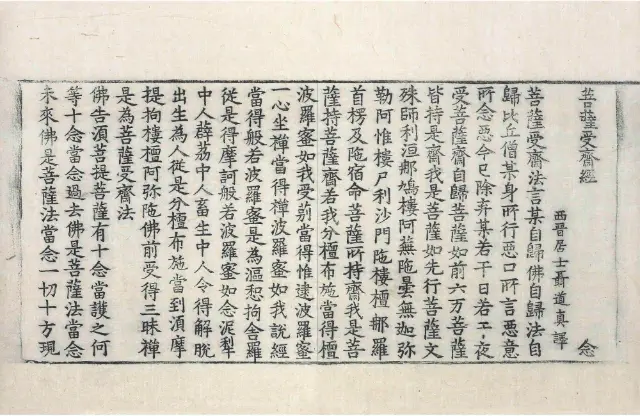 菩薩受齋經 念
西晉居士聶道真譯
菩薩受齋法言某自歸佛自歸法自
歸比丘僧某身所行惡口所言惡意
所念惡今已除弃某若干日若干夜
受菩薩齋自歸菩薩如前六万菩薩
皆持是齋我是菩薩如先行菩薩文
殊師利洹那鳩樓阿蕪陁曇無迦弥
勒阿惟樓尸利沙門陁樓檀那羅
首楞及陁宿命菩薩所持齋我是菩
薩持菩薩齋若我分檀布施當得檀
波羅蜜如我受莂當得惟逮波羅蜜
一心坐禪當得禪波羅蜜如我說經
當得般若波羅蜜是為漚惒拘舍羅
從是得摩訶般若波羅蜜如念泥犁
中人薜荔中人畜生中人令得解脫
出生為人從是分檀布施當到湏摩
提拘樓檀阿弥陁佛前受得三昧禪
是為菩薩受齋法
佛告湏菩提菩薩有十念當護之何
等十念當念過去佛是菩薩法當念
未來佛是菩薩法當念一切十方現